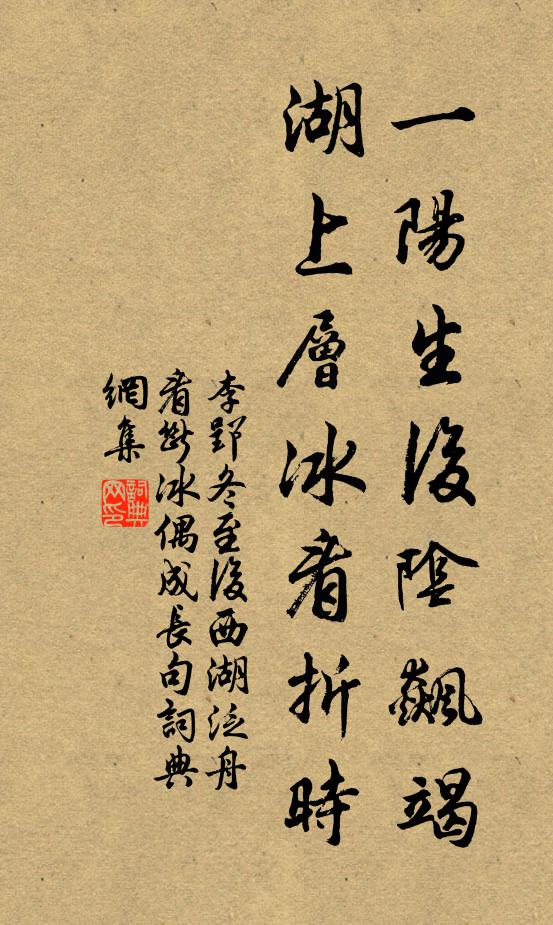 一陽生後陰飆竭
湖上層冰看折時
李郢冬至後西湖泛舟
看斷冰偶成長句詞典
網集
詞典
网印